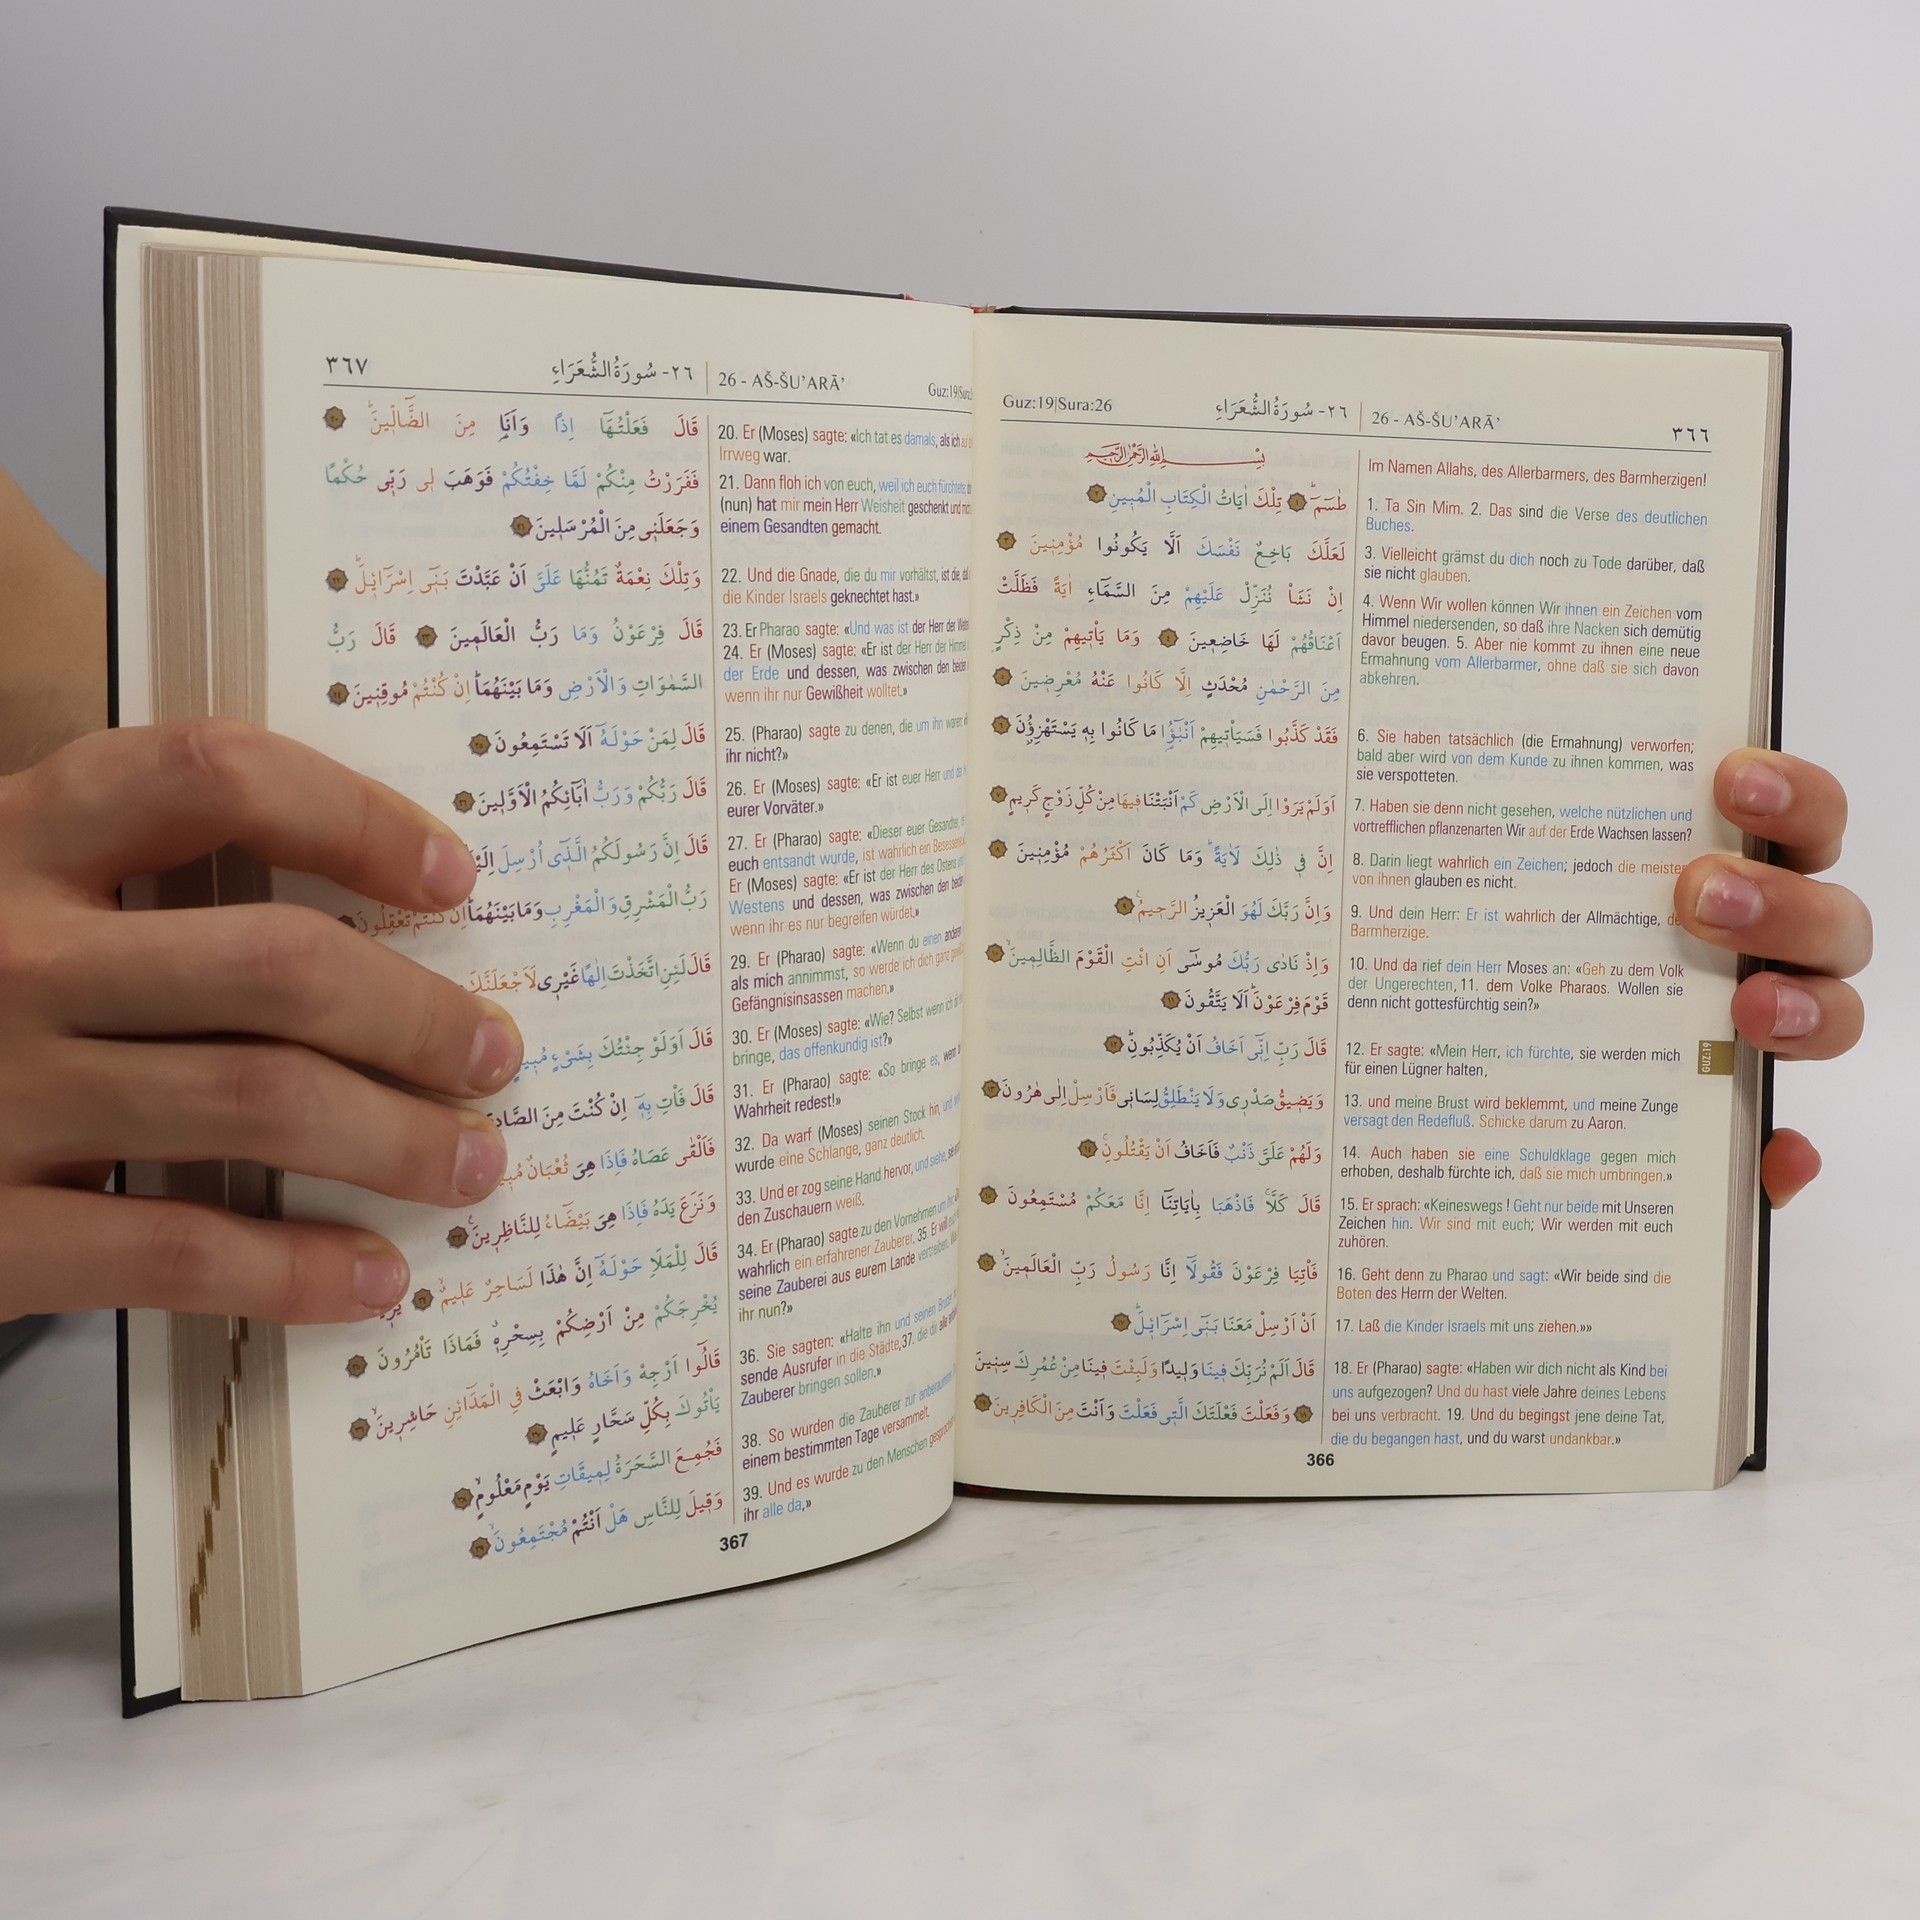 Guz:19|Sura:26
٢٦- سُورَةُ الشُّعَرَاءِ
26 - AŠ-ŠU’ARĀ’
٣٦٦
بِسْمِ اللهِ الرَّحْمٰنِ الرَّحِيمِ
طٰسٓمٓ ۚ ﴿١﴾ تِلْكَ اٰيَاتُ الْكِتَابِ الْمُبٖينِ ﴿٢﴾
لَعَلَّكَ بَاخِعٌ نَفْسَكَ اَلَّا يَكُونُوا مُؤْمِنٖينَ ﴿٣﴾
اِنْ نَشَأْ نُنَزِّلْ عَلَيْهِمْ مِنَ السَّمَٓاءِ اٰيَةً فَظَلَّتْ
اَعْنَاقُهُمْ لَهَا خَاضِعٖينَ ﴿٤﴾ وَمَا يَأْتٖيهِمْ مِنْ ذِكْرٍ
مِنَ الرَّحْمٰنِ مُحْدَثٍ اِلَّا كَانُوا عَنْهُ مُعْرِضٖينَ ﴿٥﴾
فَقَدْ كَذَّبُوا فَسَيَأْتٖيهِمْ اَنْبٰٓؤُ۬ا مَا كَانُوا بِهٖ يَسْتَهْزِؤُ۫نَ ﴿٦﴾
اَوَلَمْ يَرَوْا اِلَى الْاَرْضِ كَمْ اَنْبَتْنَا فٖيهَا مِنْ كُلِّ زَوْجٍ كَرٖيمٍ ﴿٧﴾
اِنَّ فٖي ذٰلِكَ لَاٰيَةً ؕ وَمَا كَانَ اَكْثَرُهُمْ مُؤْمِنٖينَ ﴿٨﴾
وَاِنَّ رَبَّكَ لَهُوَ الْعَزٖيزُ الرَّحٖيمُ ﴿٩﴾
وَاِذْ نَادٰى رَبُّكَ مُوسٰٓى اَنِ ائْتِ الْقَوْمَ الظَّالِمٖينَ ﴿١٠﴾
قَوْمَ فِرْعَوْنَ ؕ اَلَا يَتَّقُونَ ﴿١١﴾
قَالَ رَبِّ اِنّٖٓي اَخَافُ اَنْ يُكَذِّبُونِ ؕ ﴿١٢﴾
وَيَضٖيقُ صَدْرٖي وَلَا يَنْطَلِقُ لِسَانٖي فَاَرْسِلْ اِلٰى هٰرُونَ ﴿١٣﴾
وَلَهُمْ عَلَيَّ ذَنْبٌ فَاَخَافُ اَنْ يَقْتُلُونِ ﴿١٤﴾
قَالَ كَلَّا ۚ فَاذْهَبَا بِاٰيَاتِنَٓا اِنَّا مَعَكُمْ مُسْتَمِعُونَ ﴿١٥﴾
فَأْتِيَا فِرْعَوْنَ فَقُولَٓا اِنَّا رَسُولُ رَبِّ الْعَالَمٖينَ ﴿١٦﴾
اَنْ اَرْسِلْ مَعَنَا بَنٖٓي اِسْرَٓائٖيلَ ؕ ﴿١٧﴾
قَالَ اَلَمْ نُرَبِّكَ فٖينَا وَلٖيدًا وَلَبِثْتَ فٖينَا مِنْ عُمُرِكَ سِنٖينَ
﴿١٨﴾ وَفَعَلْتَ فَعْلَتَكَ الَّتٖي فَعَلْتَ وَاَنْتَ مِنَ الْكَافِرٖينَ ﴿١٩﴾
Im Namen Allahs, des Allerbarmers, des Barmherzigen!
1. Ta Sin Mim. 2. Das sind die Verse des deutlichen
Buches.
3. Vielleicht grämst du dich noch zu Tode darüber, daß
sie nicht glauben.
4. Wenn Wir wollen können Wir ihnen ein Zeichen vom
Himmel niedersenden, so daß ihre Nacken sich demütig
davor beugen. 5. Aber nie kommt zu ihnen eine neue
Ermahnung vom Allerbarmer, ohne daß sie sich davon
abkehren.
6. Sie haben tatsächlich (die Ermahnung) verworfen;
bald aber wird von dem Kunde zu ihnen kommen, was
sie verspotteten.
7. Haben sie denn nicht gesehen, welche nützlichen und
vortrefflichen pflanzenarten Wir auf der Erde Wachsen lassen?
8. Darin liegt wahrlich ein Zeichen; jedoch die meisten
von ihnen glauben es nicht.
9. Und dein Herr: Er ist wahrlich der Allmächtige, der
Barmherzige.
10. Und da rief dein Herr Moses an: «Geh zu dem Volk
der Ungerechten, 11. dem Volke Pharaos. Wollen sie
denn nicht gottesfürchtig sein?»
12. Er sagte: «Mein Herr, ich fürchte, sie werden mich
für einen Lügner halten,
13. und meine Brust wird beklemmt, und meine Zunge
versagt den Redefluß. Schicke darum zu Aaron.
14. Auch haben sie eine Schuldklage gegen mich
erhoben, deshalb fürchte ich, daß sie mich umbringen.»
15. Er sprach: «Keineswegs! Geht nur beide mit Unseren
Zeichen hin. Wir sind mit euch; Wir werden mit euch
zuhören.
16. Geht denn zu Pharao und sagt: «Wir beide sind die
Boten des Herrn der Welten.
17. Laß die Kinder Israels mit uns ziehen.»»
18. Er (Pharao) sagte: «Haben wir dich nicht als Kind bei
uns aufgezogen? Und du hast viele Jahre deines Lebens
bei uns verbracht. 19. Und du begingst jene deine Tat,
die du begangen hast, und du warst undankbar.»
GUZ:19
366
٣٦٧
٢٦- سُورَةُ الشُّعَرَاءِ
26 - AŠ-ŠU’ARĀ’
Guz:19|Sura:
قَالَ فَعَلْتُهَٓا اِذًا وَاَنَا۬ مِنَ الضَّٓالّٖينَ ؕ ﴿٢٠﴾
فَفَرَرْتُ مِنْكُمْ لَمَّا خِفْتُكُمْ فَوَهَبَ لٖي رَبّٖي حُكْمًا
وَجَعَلَنٖي مِنَ الْمُرْسَلٖينَ ﴿٢١﴾
وَتِلْكَ نِعْمَةٌ تَمُنُّهَا عَلَيَّ اَنْ عَبَّدْتَ بَنٖٓي اِسْرَٓائٖيلَ ؕ ﴿٢٢﴾
قَالَ فِرْعَوْنُ وَمَا رَبُّ الْعَالَمٖينَ ﴿٢٣﴾ قَالَ رَبُّ
السَّمٰوَاتِ وَالْاَرْضِ وَمَا بَيْنَهُمَا ؕ اِنْ كُنْتُمْ مُوقِنٖينَ ﴿٢٤﴾
قَالَ لِمَنْ حَوْلَهُٓ اَلَا تَسْتَمِعُونَ ﴿٢٥﴾
قَالَ رَبُّكُمْ وَرَبُّ اٰبَٓائِكُمُ الْاَوَّلٖينَ ﴿٢٦﴾
قَالَ اِنَّ رَسُولَكُمُ الَّذٖٓي اُرْسِلَ
رَبُّ الْمَشْرِقِ وَالْمَغْرِبِ وَمَا بَيْنَهُمَا ؕ اِنْ كُنْتُمْ تَعْقِلُونَ
قَالَ لَئِنِ اتَّخَذْتَ اِلٰهًا غَيْرٖي لَاَجْعَلَنَّكَ
قَالَ اَوَلَوْ جِئْتُكَ بِشَيْءٍ مُبٖينٍ
قَالَ فَأْتِ بِهٖٓ اِنْ كُنْتَ مِنَ
فَاَلْقٰى عَصَاهُ فَاِذَا هِيَ ثُعْبَانٌ
وَنَزَعَ يَدَهُ فَاِذَا هِيَ بَيْضَٓاءُ لِلنَّاظِرٖينَ ﴿٣٣﴾
قَالَ لِلْمَلَاِ حَوْلَهُٓ اِنَّ هٰذَا لَسَاحِرٌ عَلٖيمٌ ﴿٣٤﴾
يُخْرِجَكُمْ مِنْ اَرْضِكُمْ بِسِحْرِهٖ فَمَاذَا تَأْمُرُونَ ﴿٣٥﴾
قَالُٓوا اَرْجِهْ وَاَخَاهُ وَابْعَثْ فِي الْمَدَٓائِنِ حَاشِرٖينَ ﴿٣٦﴾
يَأْتُوكَ بِكُلِّ سَحَّارٍ عَلٖيمٍ ﴿٣٧﴾
فَجُمِعَ السَّحَرَةُ لِمٖيقَاتِ يَوْمٍ مَعْلُومٍ ﴿٣٨﴾
وَقٖيلَ لِلنَّاسِ هَلْ اَنْتُمْ مُجْتَمِعُونَ ﴿٣٩﴾
20. Er (Moses) sagte: «Ich tat es damals, als ich
Irrweg war.
21. Dann floh ich von euch, weil ich euch fürchtete;
(nun) hat mir mein Herr Weisheit geschenkt und
einem Gesandten gemacht.
22. Und die Gnade, die du mir vorhältst, ist die,
die Kinder Israels geknechtet hast.»
23. Er Pharao sagte: «Und was ist der Herr der
24. Er (Moses) sagte: «Er ist der Herr der Himmel
der Erde und dessen, was zwischen den beiden
wenn ihr nur Gewißheit wolltet.»
25. (Pharao) sagte zu denen, die um ihn waren:
ihr nicht?»
26. Er (Moses) sagte: «Er ist euer Herr und
eurer Vorväter.»
27. Er (Pharao) sagte: «Dieser euer Gesandter,
euch entsandt wurde, ist wahrlich ein
Er (Moses) sagte: «Er ist der Herr des Ostens
Westens und dessen, was zwischen den beiden
wenn ihr es nur begreifen würdet.»
29. Er (Pharao) sagte: «Wenn du einen anderen
als mich annimmst, so werde ich dich ganz
Gefängnisinsassen machen.»
30. Er (Moses) sagte: «Wie? Selbst wenn ich
bringe, das offenkundig ist?»
31. Er (Pharao) sagte: «So bringe es, wenn
Wahrheit redest!»
32. Da warf (Moses) seinen Stock hin, und
wurde eine Schlange, ganz deutlich.
33. Und er zog seine Hand hervor, und siehe,
den Zuschauern weiß.
34. Er (Pharao) sagte zu den Vornehmen um ihn
wahrlich ein erfahrener Zauberer. 35. Er will
seine Zauberei aus eurem Lande vertreiben.
ihr nun?»
36. Sie sagten: «Halte ihn und seinen Bruder
sende Ausrufer in die Städte, 37. die dir alle
Zauberer bringen sollen.»
38. So wurden die Zauberer zur anberaumten
einem bestimmten Tage versammelt.
39. Und es wurde zu den Menschen gesprochen:
ihr alle da,»
367